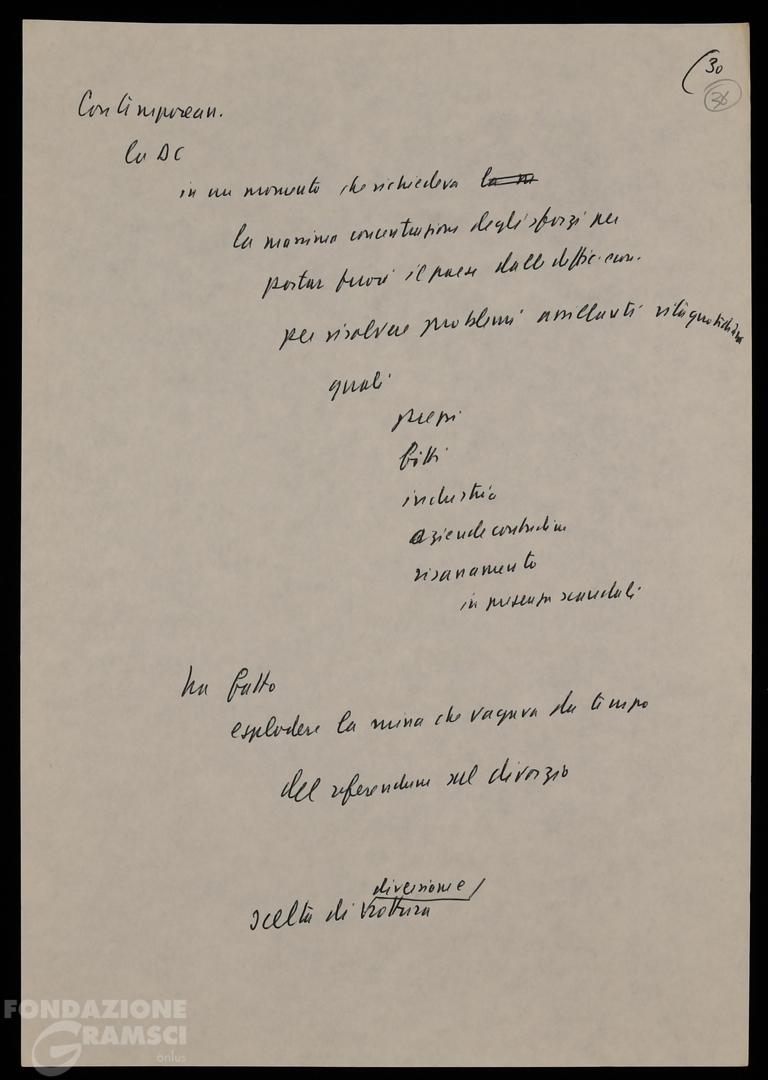 (30
36
Contemporean.
la DC
in un momento che richiedeva la m
la massima concentrazione degli sforzi per
portar fuori il paese dalle diffic. econ.
per risolvere problemi assillanti vita quotidiana
quali
prezzi
fitti
industria
aziende contadine
risanamento
in presenza scandali
ha fatto
esplodere la mina che vagava da tempo
del referendum sul divorzio
diversione/
scelta di rottura
FONDAZIONE
GRAMSCI
onlus